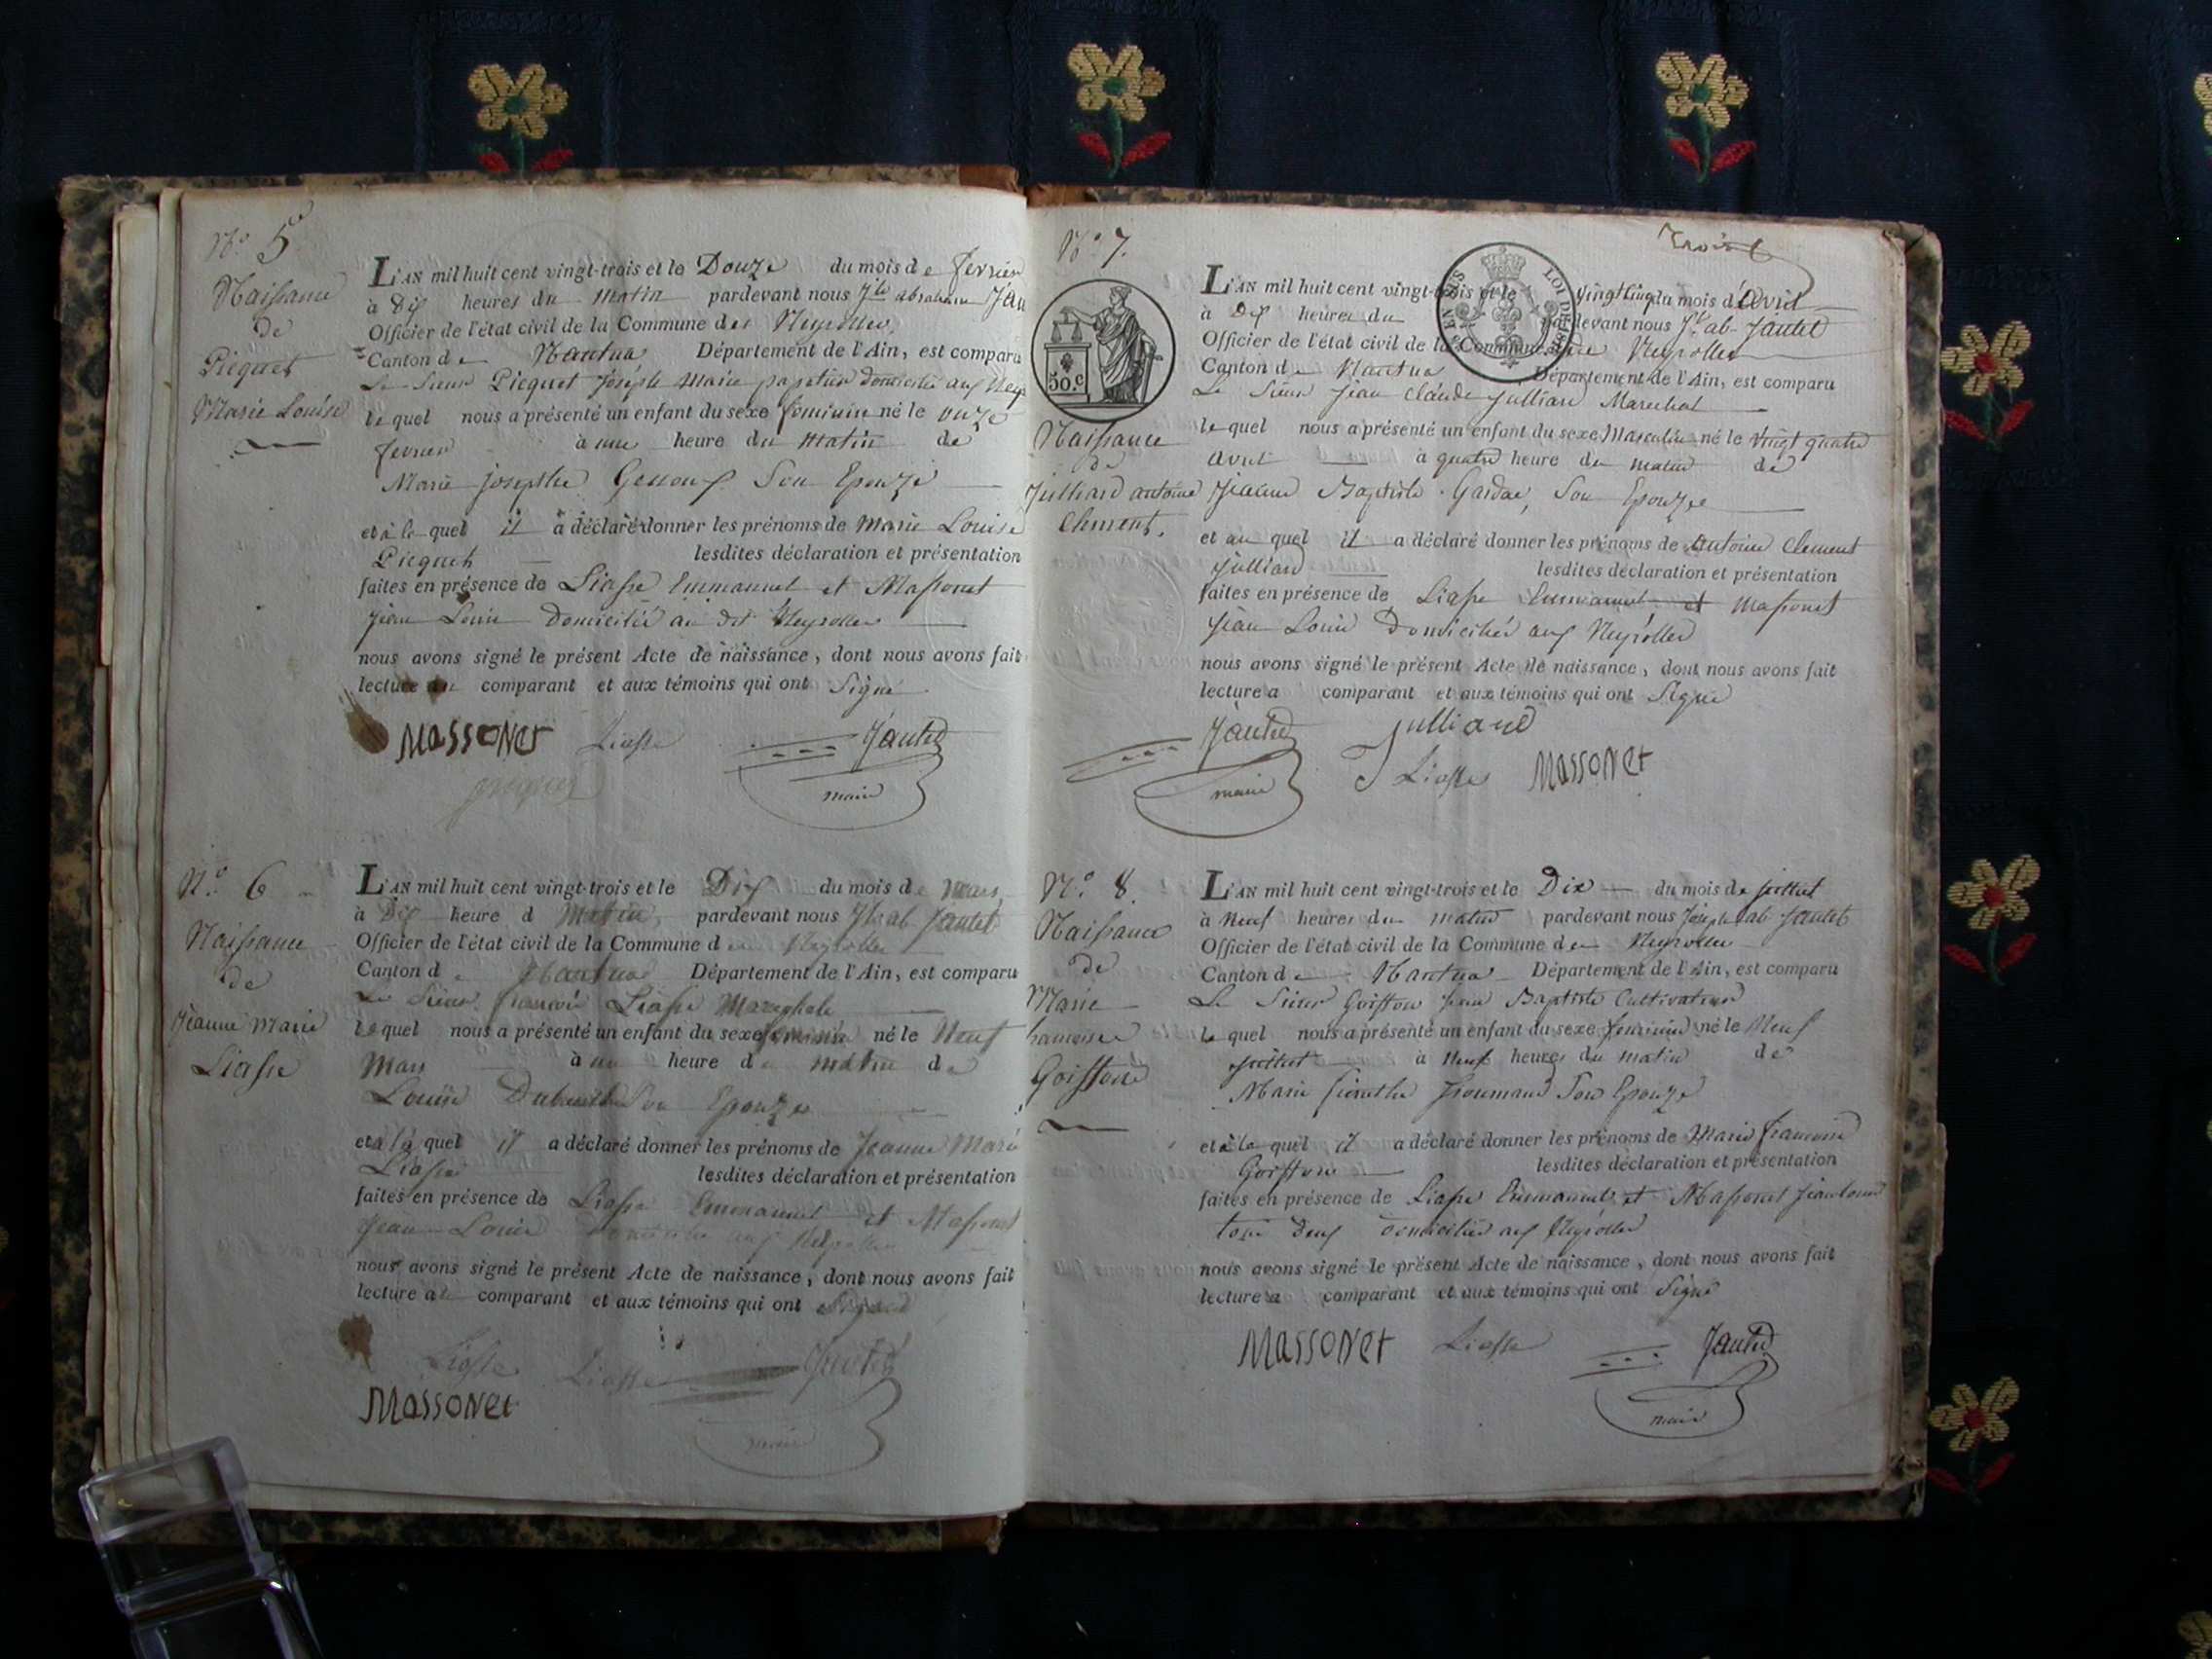 N.o 5
Naissance
de
Picquet
Marie Louise
L'AN mil huit cent vingt-trois et le Douze du mois de fevrier
à Dix heures du matin pardevant nous Jh abraham
Officier de l'état civil de la Commune des Neyrolles
Canton de Nantua Département de l'Ain, est comparu
Le Sieur Picquet Joseph Marie papetier domicilié aux
lequel nous a présenté un enfant du sexe feminin né le onze
fevrier à une heure du matin de
Marie Josephte Son Epouze
et à la quel il a déclaré donner les prénoms de Marie Louise
Picquet lesdites déclaration et présentation
faites en présence de Liasse Emmanuel et Massonet
Jean Louis Domicilié au dit Neyrolles
nous avons signé le présent Acte de naissance, dont nous avons fait
lecture au comparant et aux témoins qui ont Signé
MassoNet Liasse Jautet
maire
N.o 6
Naissance
de
Jeanne Marie
Liasse
L'AN mil huit cent vingt-trois et le Dix du mois de Mars
à Dix heure d Matin pardevant nous Jh ab Jautet
Officier de l'état civil de la Commune de Neyrolles
Canton de Nantua Département de l'Ain, est comparu
Le Sieur francois Liasse Marechal
lequel nous a présenté un enfant du sexe feminin né le Neuf
Mars à une heure du matin de
Louise Son Epouze
et à la quel il a déclaré donner les prénoms de Jeanne Marie
Liasse lesdites déclaration et présentation
faites en présence de Liasse Emmanuel et Massonet
Jean Louis Domicilié aux Neyrolles
nous avons signé le présent Acte de naissance, dont nous avons fait
lecture au comparant et aux témoins qui ont Signé
Liasse Liasse Jautet
MassoNet
maire
Trois
N.o 7.
50.c
Naissance
de
Julliard antoine
Clement.
L'AN mil huit cent vingt-trois et le vingt cinq du mois d'Avril
à Dix heures du pardevant nous Jh ab Jautet
Officier de l'état civil de la Commune de Neyrolles
Canton de Nantua Département de l'Ain, est comparu
Le Sieur Jean Claude Julliard Marechal
lequel nous a présenté un enfant du sexe Masculin né le vingt quatre
avril à quatre heure du matin de
Baptiste Son Epouze
et au quel il a déclaré donner les prénoms de Antoine Clement
Julliard lesdites déclaration et présentation
faites en présence de Liasse Emmanuel et Massonet
Jean Louis Domiciliés aux Neyrolles
nous avons signé le présent Acte de naissance, dont nous avons fait
lecture a comparant et aux témoins qui ont Signé
Jautet Julliard
maire Liasse MassoNet
N.o 8.
Naissance
de
Marie
francoise
Goiffon
L'AN mil huit cent vingt-trois et le Dix du mois de juillet
à Neuf heures du matin pardevant nous Joseph ab Jautet
Officier de l'état civil de la Commune de Neyrolles
Canton de Nantua Département de l'Ain, est comparu
Le Sieur Goiffon Jean Baptiste Cultivateur
lequel nous a présenté un enfant du sexe feminin né le Neuf
juillet à Neuf heures du matin de
Marie Son Epouze
et à la quel il a déclaré donner les prénoms de Marie francoise
Goiffon lesdites déclaration et présentation
faites en présence de Liasse Emmanuel et Massonet Jean Louis
tous deux domiciliés aux Neyrolles
nous avons signé le présent Acte de naissance, dont nous avons fait
lecture a comparant et aux témoins qui ont Signé
MassoNet Liasse Jautet
maire